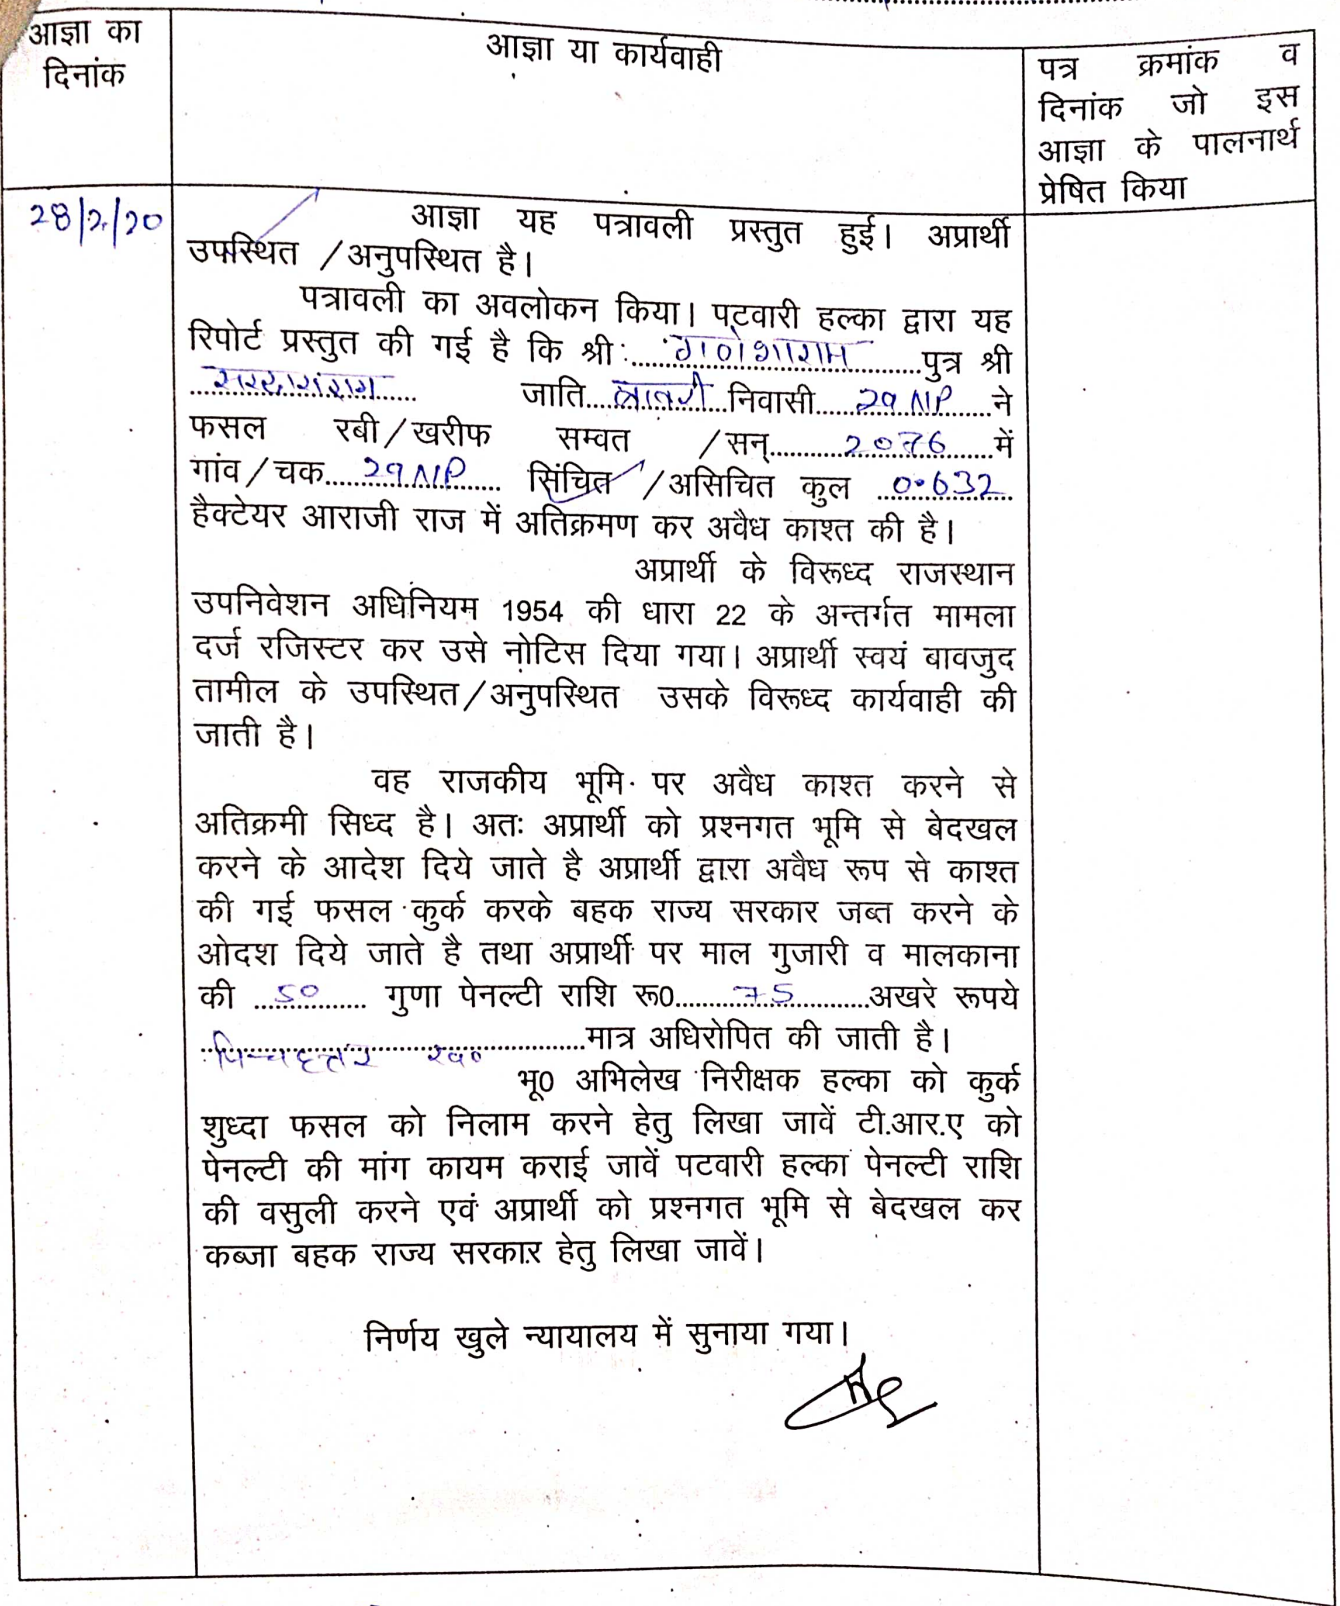 आज्ञा का
दिनांक
आज्ञा या कार्यवाही
पत्र क्रमांक व
दिनांक जो इस
आज्ञा के पालनार्थ
प्रेषित किया
28/2/20
आज्ञा यह पत्रावली प्रस्तुत हुई। अप्रार्थी
उपस्थित /अनुपस्थित है।
पत्रावली का अवलोकन किया। पटवारी हल्का द्वारा यह
रिपोर्ट प्रस्तुत की गई है कि श्री गणेशाराम पुत्र श्री
जाति बावरी निवासी 29 NP ने
फसल रबी/खरीफ सम्वत /सन् 2076 में
गांव/चक 29 NP सिंचित /असिचित कुल 0.632
हैक्टेयर आराजी राज में अतिक्रमण कर अवैध काश्त की है।
अप्रार्थी के विरूध्द राजस्थान
उपनिवेशन अधिनियम 1954 की धारा 22 के अन्तर्गत मामला
दर्ज रजिस्टर कर उसे नोटिस दिया गया। अप्रार्थी स्वयं बावजुद
तामील के उपस्थित/अनुपस्थित उसके विरूध्द कार्यवाही की
जाती है।
वह राजकीय भूमि पर अवैध काश्त करने से
अतिक्रमी सिध्द है। अतः अप्रार्थी को प्रश्नगत भूमि से बेदखल
करने के आदेश दिये जाते है अप्रार्थी द्वारा अवैध रूप से काश्त
की गई फसल कुर्क करके बहक राज्य सरकार जब्त करने के
ओदश दिये जाते है तथा अप्रार्थी पर माल गुजारी व मालकाना
की 50 गुणा पेनल्टी राशि रू0 75 अखरे रूपये
पिच्चहत्तर रू0 मात्र अधिरोपित की जाती है।
भू0 अभिलेख निरीक्षक हल्का को कुर्क
शुध्दा फसल को निलाम करने हेतु लिखा जावें टी.आर.ए को
पेनल्टी की मांग कायम कराई जावें पटवारी हल्का पेनल्टी राशि
की वसुली करने एवं अप्रार्थी को प्रश्नगत भूमि से बेदखल कर
कब्जा बहक राज्य सरकार हेतु लिखा जावें।
निर्णय खुले न्यायालय में सुनाया गया।